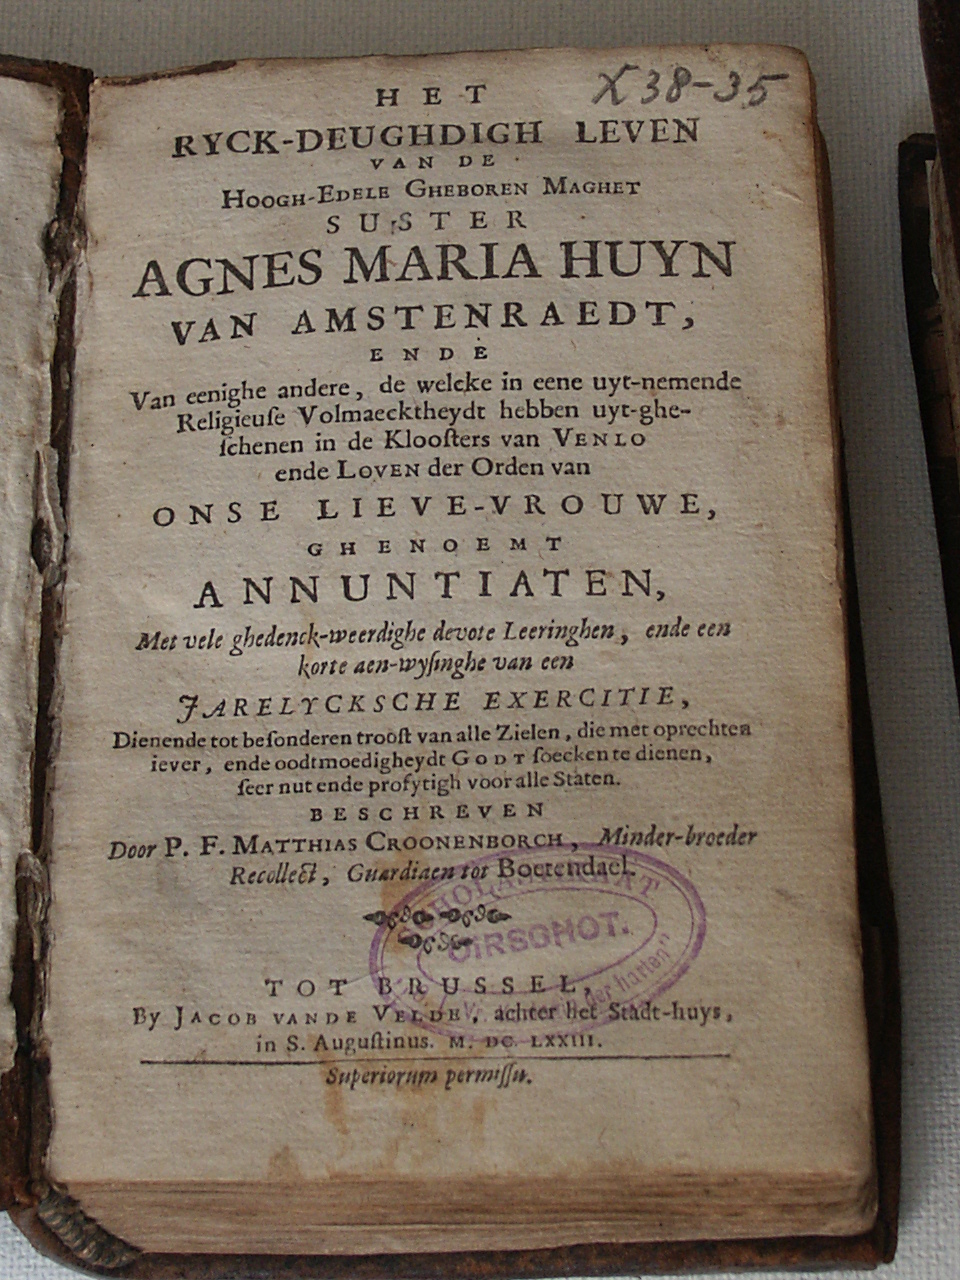 X38-35
HET
RYCK-DEUGHDIGH LEVEN
VAN DE
HOOGH-EDELE GHEBOREN MAGHET
SUSTER
AGNES MARIA HUYN
VAN AMSTENRAEDT,
ENDE
Van eenighe andere, de welcke in eene uyt-nemende
Religieuſe Volmaecktheydt hebben uyt-ghe-
ſchenen in de Klooſters van VENLO
ende LOVEN der Orden van
ONSE LIEVE-VROUWE,
GHENOEMT
ANNUNTIATEN,
Met vele ghedenck-weerdighe devote Leeringhen, ende een
korte aen-wyſinghe van een
JARELYCKSCHE EXERCITIE,
Dienende tot beſonderen trooſt van alle Zielen, die met oprechten
iever, ende oodtmoedigheydt GODT ſoecken te dienen,
ſeer nut ende profytigh voor alle Staten.
BESCHREVEN
Door P. F. MATTHIAS CROONENBORCH, Minder-broeder
Recollect, Guardiaen tot Boetendael.
OIRSCHOT.
der harten"
TOT BRUSSEL,
By JACOB VANDE VELDE, achter het Stadt-huys,
in S. Auguſtinus. M. DC. LXXIII.
Superiorum permiſſu.